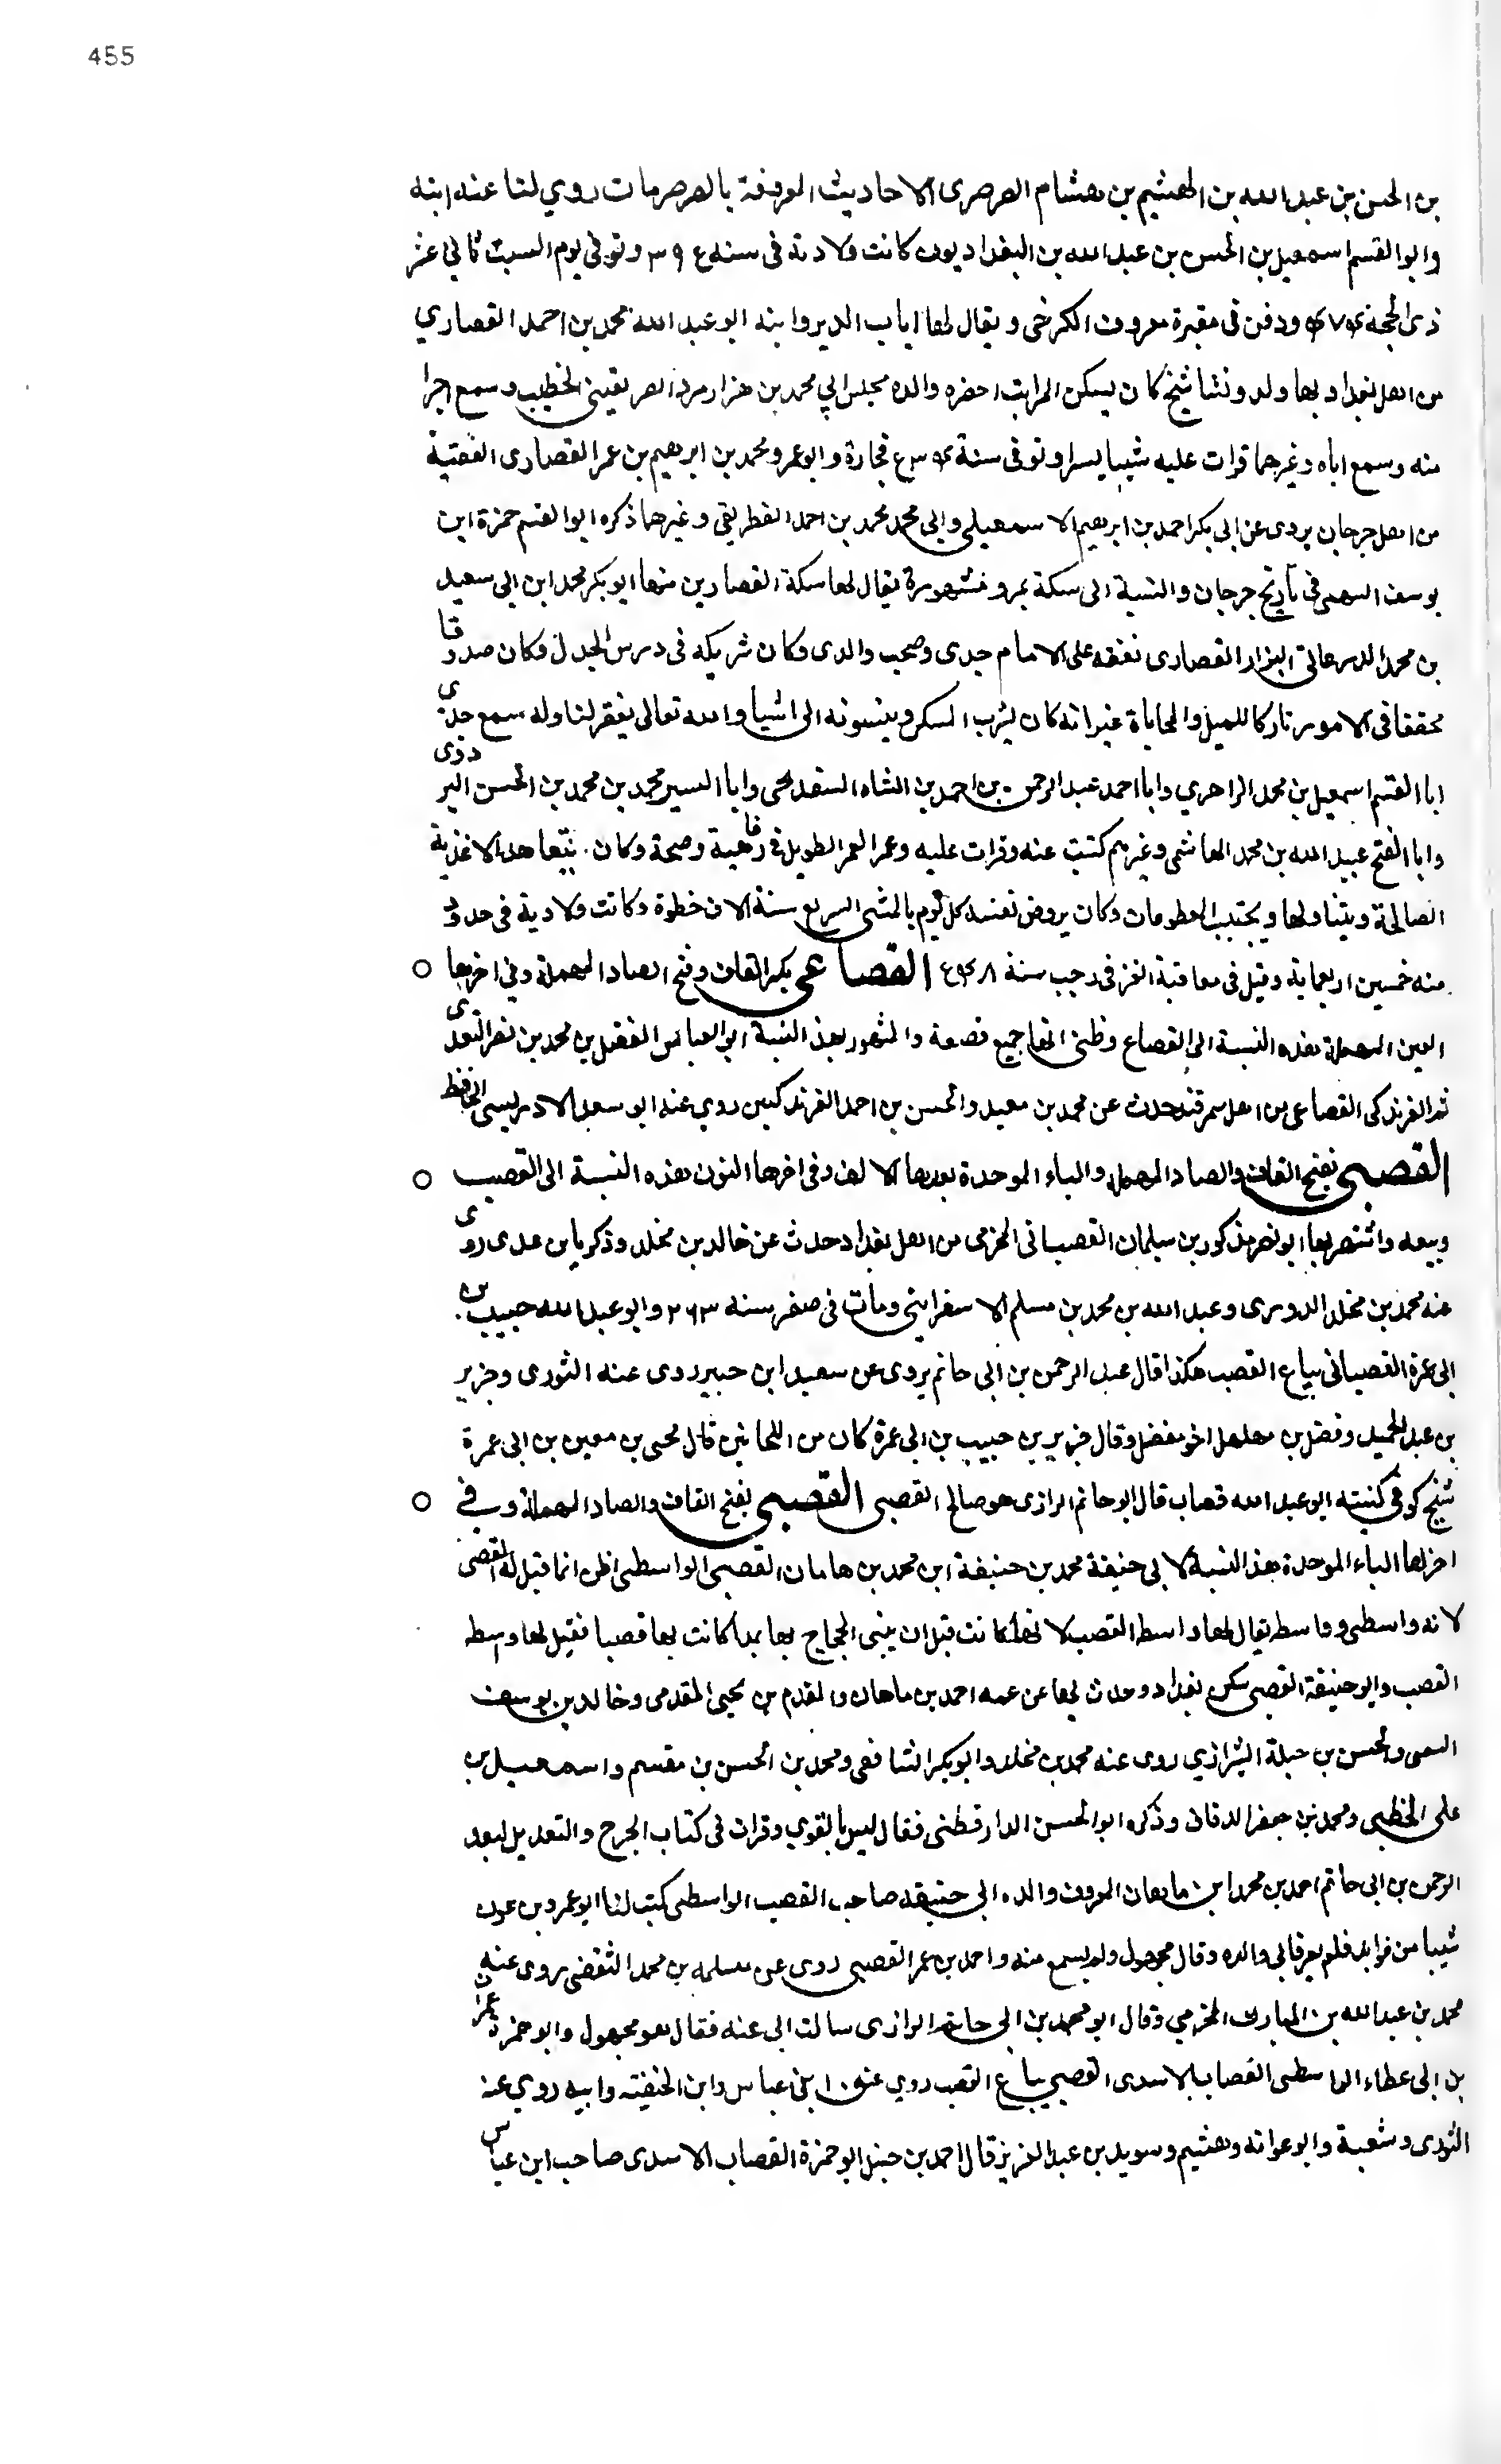 455
بن الحسن بن عبد الله بن الهيثم بن هشام الصرصرى الاحاديث المعروفة بالصرصرمات روي لنا عنه ابنه
وابو القسم اسمعيل بن الحسن بن عبد الله بن البغداديون كانت ولادته فى سنه وتوفي يوم السبت ثاني عشر
ذى الحجة ودفن فى مقبرة معروف الكرخى ويقال لها باب الدير وابنه ابو عبد الله محمد بن احمد القصاري
من اهل بغداد بها ولد ونشا شيخ كان يسكن المراتب احضره والده مجلس ابي محمد بن هزارمرد الصريفينى الخطيب وسمع اجزا
منه وسمع اباه وغيرهما قرات عليه شيبا يسرا وتوفى سنة وابو عمرو محمد بن ابرهيم بن عمر القصارى الفقيه
من اهل جرجان يروى عن ابي بكر احمد بن ابرهيم الاسمعيلى وابي محمد محمد بن احمد الغطريفى وغيرهما ذكره ابو القسم حمزة ابن
يوسف السهمى فى تاريخ جرجان والنسبة الى سكة بمرو مشهورة يقال لها سكة القصارين منها ابو بكر محمد ابن ابي سعيد
بن محمد البزار القصارى تفقه على الامام جدى وصحب والدى وكان شريكه فى درس الجدل وكان صدوقا
محققا فى الامور تاركا للميل والمحاباة غير انه كان يشرب المسكر وينسبونه الى اشيا والله تعالى يغفر لنا وله سمع جدى
ابا القسم اسمعيل بن محمد الزاهري وابا احمد عبد الرحمن بن احمد بن الشاه وابا اليسير محمد بن محمد بن الحسن البزدوى
وابا الفتح عبيد الله بن محمد الهاشمى وغيرهم كتبت عنه وقرات عليه وعمر العمر الطويل فى رفاهية وصحة وكان يتعاهد الاغذية
الصالحة ويتناولها ويجتنب المطعومات وكان يروض نفسه كل يوم بالمشى السريع ستة الاف خطوة وكانت ولاديه فى حدود
سنه خمسين اربعماية وقتل فى معاقبة الغز فى رجب سنة القصاعى بكسر القاف وفتح الصاد المهملة وفى اخرها
العين المهملة هذه النسبة الى القصاع وظنى انها جميع قصعة والمشهور بهذ النسبة ابو العباس الفضل بن محمد بن نصر
ثم الفرنكى القصاعى من اهل سمرقند حدث عن محمد بن معبد والحسن بن احمد روي عنه ابو سعد الادريسى الحافظ
القصبى بفتح القاف والصاد المهملة والباء الموحدة بعدها الالف وفى اخرها النون هذه النسبة الى القصب
وبيعه واشتهر بها ابو نصر مذكور بن سليمان القصبانى المخرمى من اهل بغداد حدث عن خالد بن مخلد وذكريا بن عدى روى
عنه محمد بن مخلد الدورى وعبد الله بن محمد بن مسلم الاسفراينى ومات فى صفر سنه ٢٦٣ وابو عبد الله حبيب بن
ابى عمرة القصبانى بياع القصب هكذا قال عبد الرحمن بن ابى حاتم يروى عن سعيد ابن جبير روى عنه الثورى وجرير
بن عبد الحميد وفضل بن مهلهل اخو مفضل وقال جرير بن حبيب بن ابى عمرة كان من اللحانين قال يحيى بن معين بن ابى عمرة
شيخ كوفى كنيته ابو عبد الله قصاب قال ابو حاتم الرازى هو صالح القصبى القصبى بفتح القاف والصاد المهملة وفى
اخرها الباء الموحدة هذ النسبة لابى حنيفة محمد بن حنيفة ابن محمد بن هامان القصبى الواسطى اظن انما قيل له القصبى
لانه واسطى وواسط يقال لها واسط القصب لانها كانت قبل ان يبنى الحجاج بها بلدا كانت بها قصبا فقيل لها واسط
القصب وابو حنيفة القصبى سكن بغداد وحدث بها عن عمه احمد بن ماهان والمقدم بن يحيى المقدمى وخالد بن يوسف
السمى والحسن بن جبلة الشيرازي روى عنه محمد بن مخلد وابو بكر الشافعى ومحمد بن الحسن بن مقسم واسمعيل بن
على الخطبى ومحمد بن جعفر الدقان وذكره ابو الحسن الدارقطنى فقال ليس بالقوي وقرات فى كتاب الجرح والتعديل لعبد
الرحمن بن ابى حاتم احمد بن محمد ابن ماهان المعروف والده ابى حنيفه صاحب القصب الواسطى كتب لنا ابو عمرو بن عون
شيبا من فوايد فلم يعرف ابي والده وقال مجهول ولم يسمع منه واحمد بن عمر القصبى روى عن مسلمه بن محمد الثقفى روى عنه
محمد بن عبد الله بن المبارك المخرمي وقال ابو محمد بن ابى حاتم الرازى سالت ابى عنه فقال هو مجهول وابو حمزة عمران
بن ابى عطاء الواسطى القصاب الاسدى القصبى بياع القصب روي عن ابن عباس وابن الحنفيه وابيه روي عنه
الثورى وشعبة وابو عوانه وهشيم وسويد بن عبد العزيز قال احمد بن حنبل ابو حمزة القصاب الاسدى صاحب ابن عباس